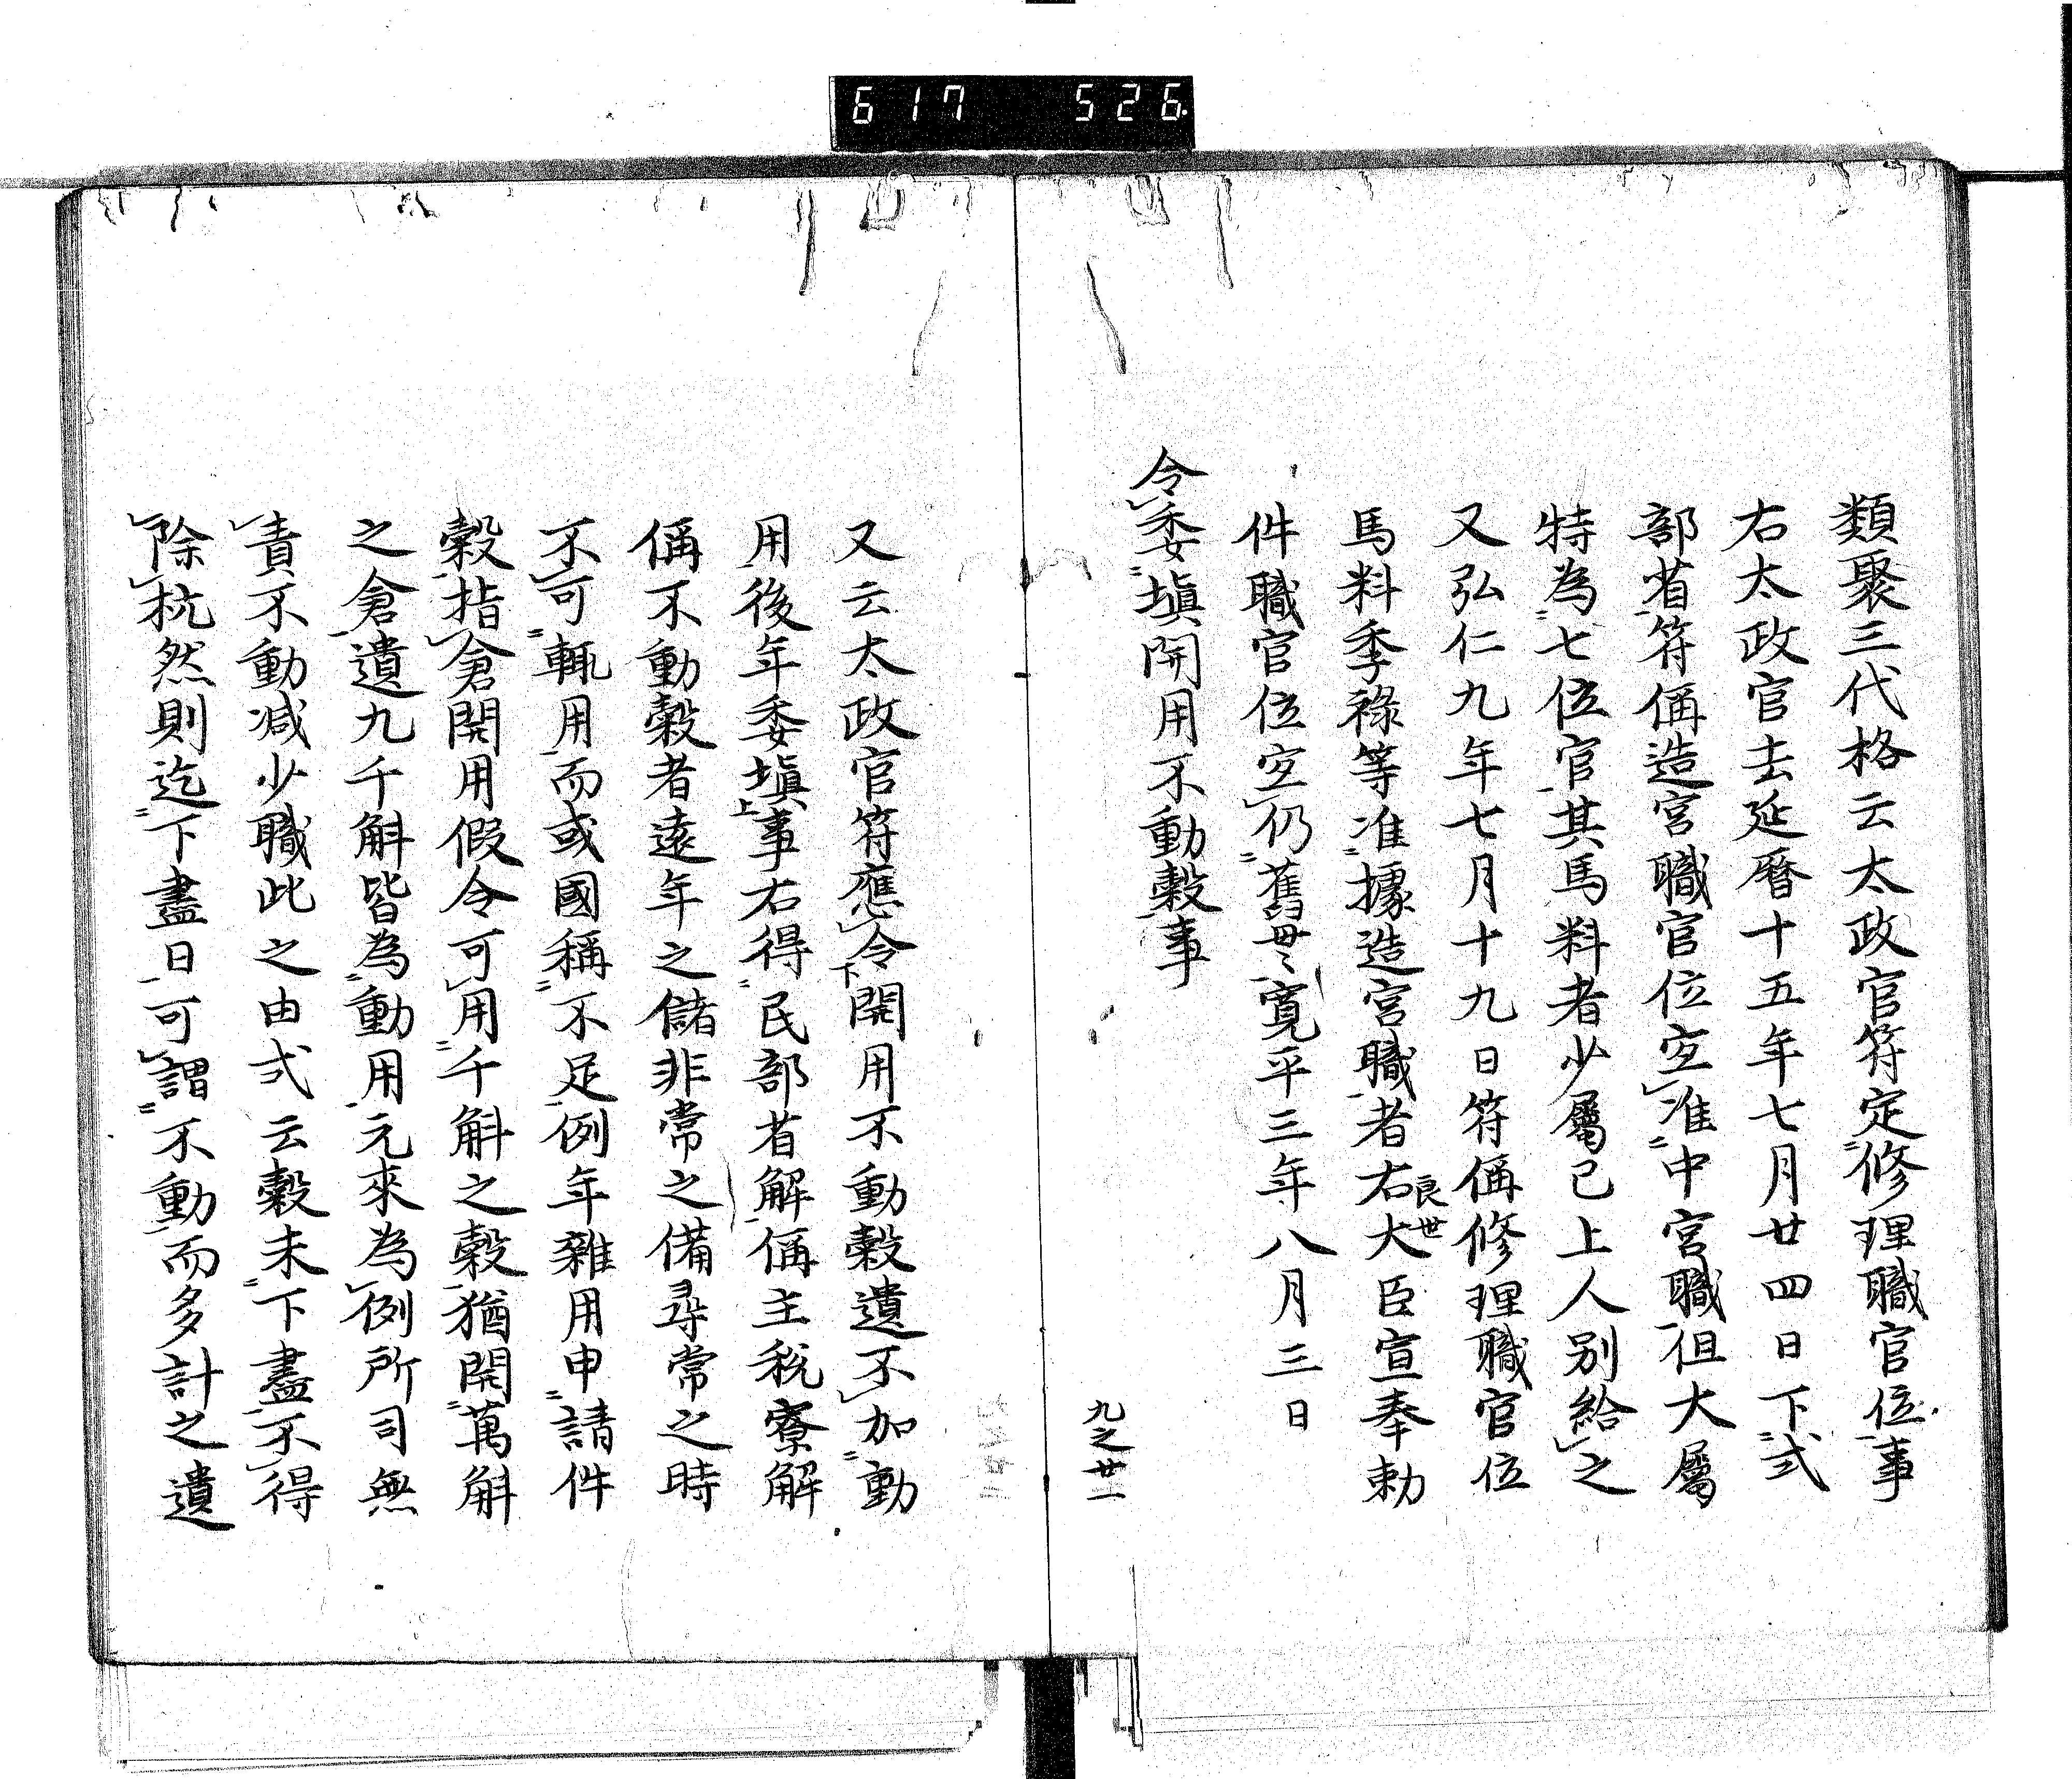 617 526
類聚三代格云太政官符定修理職官位事
右太政官去延暦十五年七月廿四日下式
部省符偁造宮職官位宜准中宮職但大屬
特為七位官其馬料者少屬已上人別給之
又弘仁九年七月十九日符偁修理職官位
馬料季祿等准據造宮職者右大臣宣奉勅
良世
件職官位宜仍舊毋〻寛平三年八月三日
令委填開用不動穀事
九之廿一
又云太政官符應令開用不動穀遺不加動
用後年委填事右得民部省解偁主税寮解
偁不動穀者遠年之儲非常之備尋常之時
不可輙用而或國稱不足例年雜用申請件
穀指倉開用假令可用千斛之穀猶開萬斛
之倉遺九千斛皆為動用元來為例所司無
責不動减少職此之由式云穀未下盡不得
除杭然則迄下盡日可謂不動而多計之遺